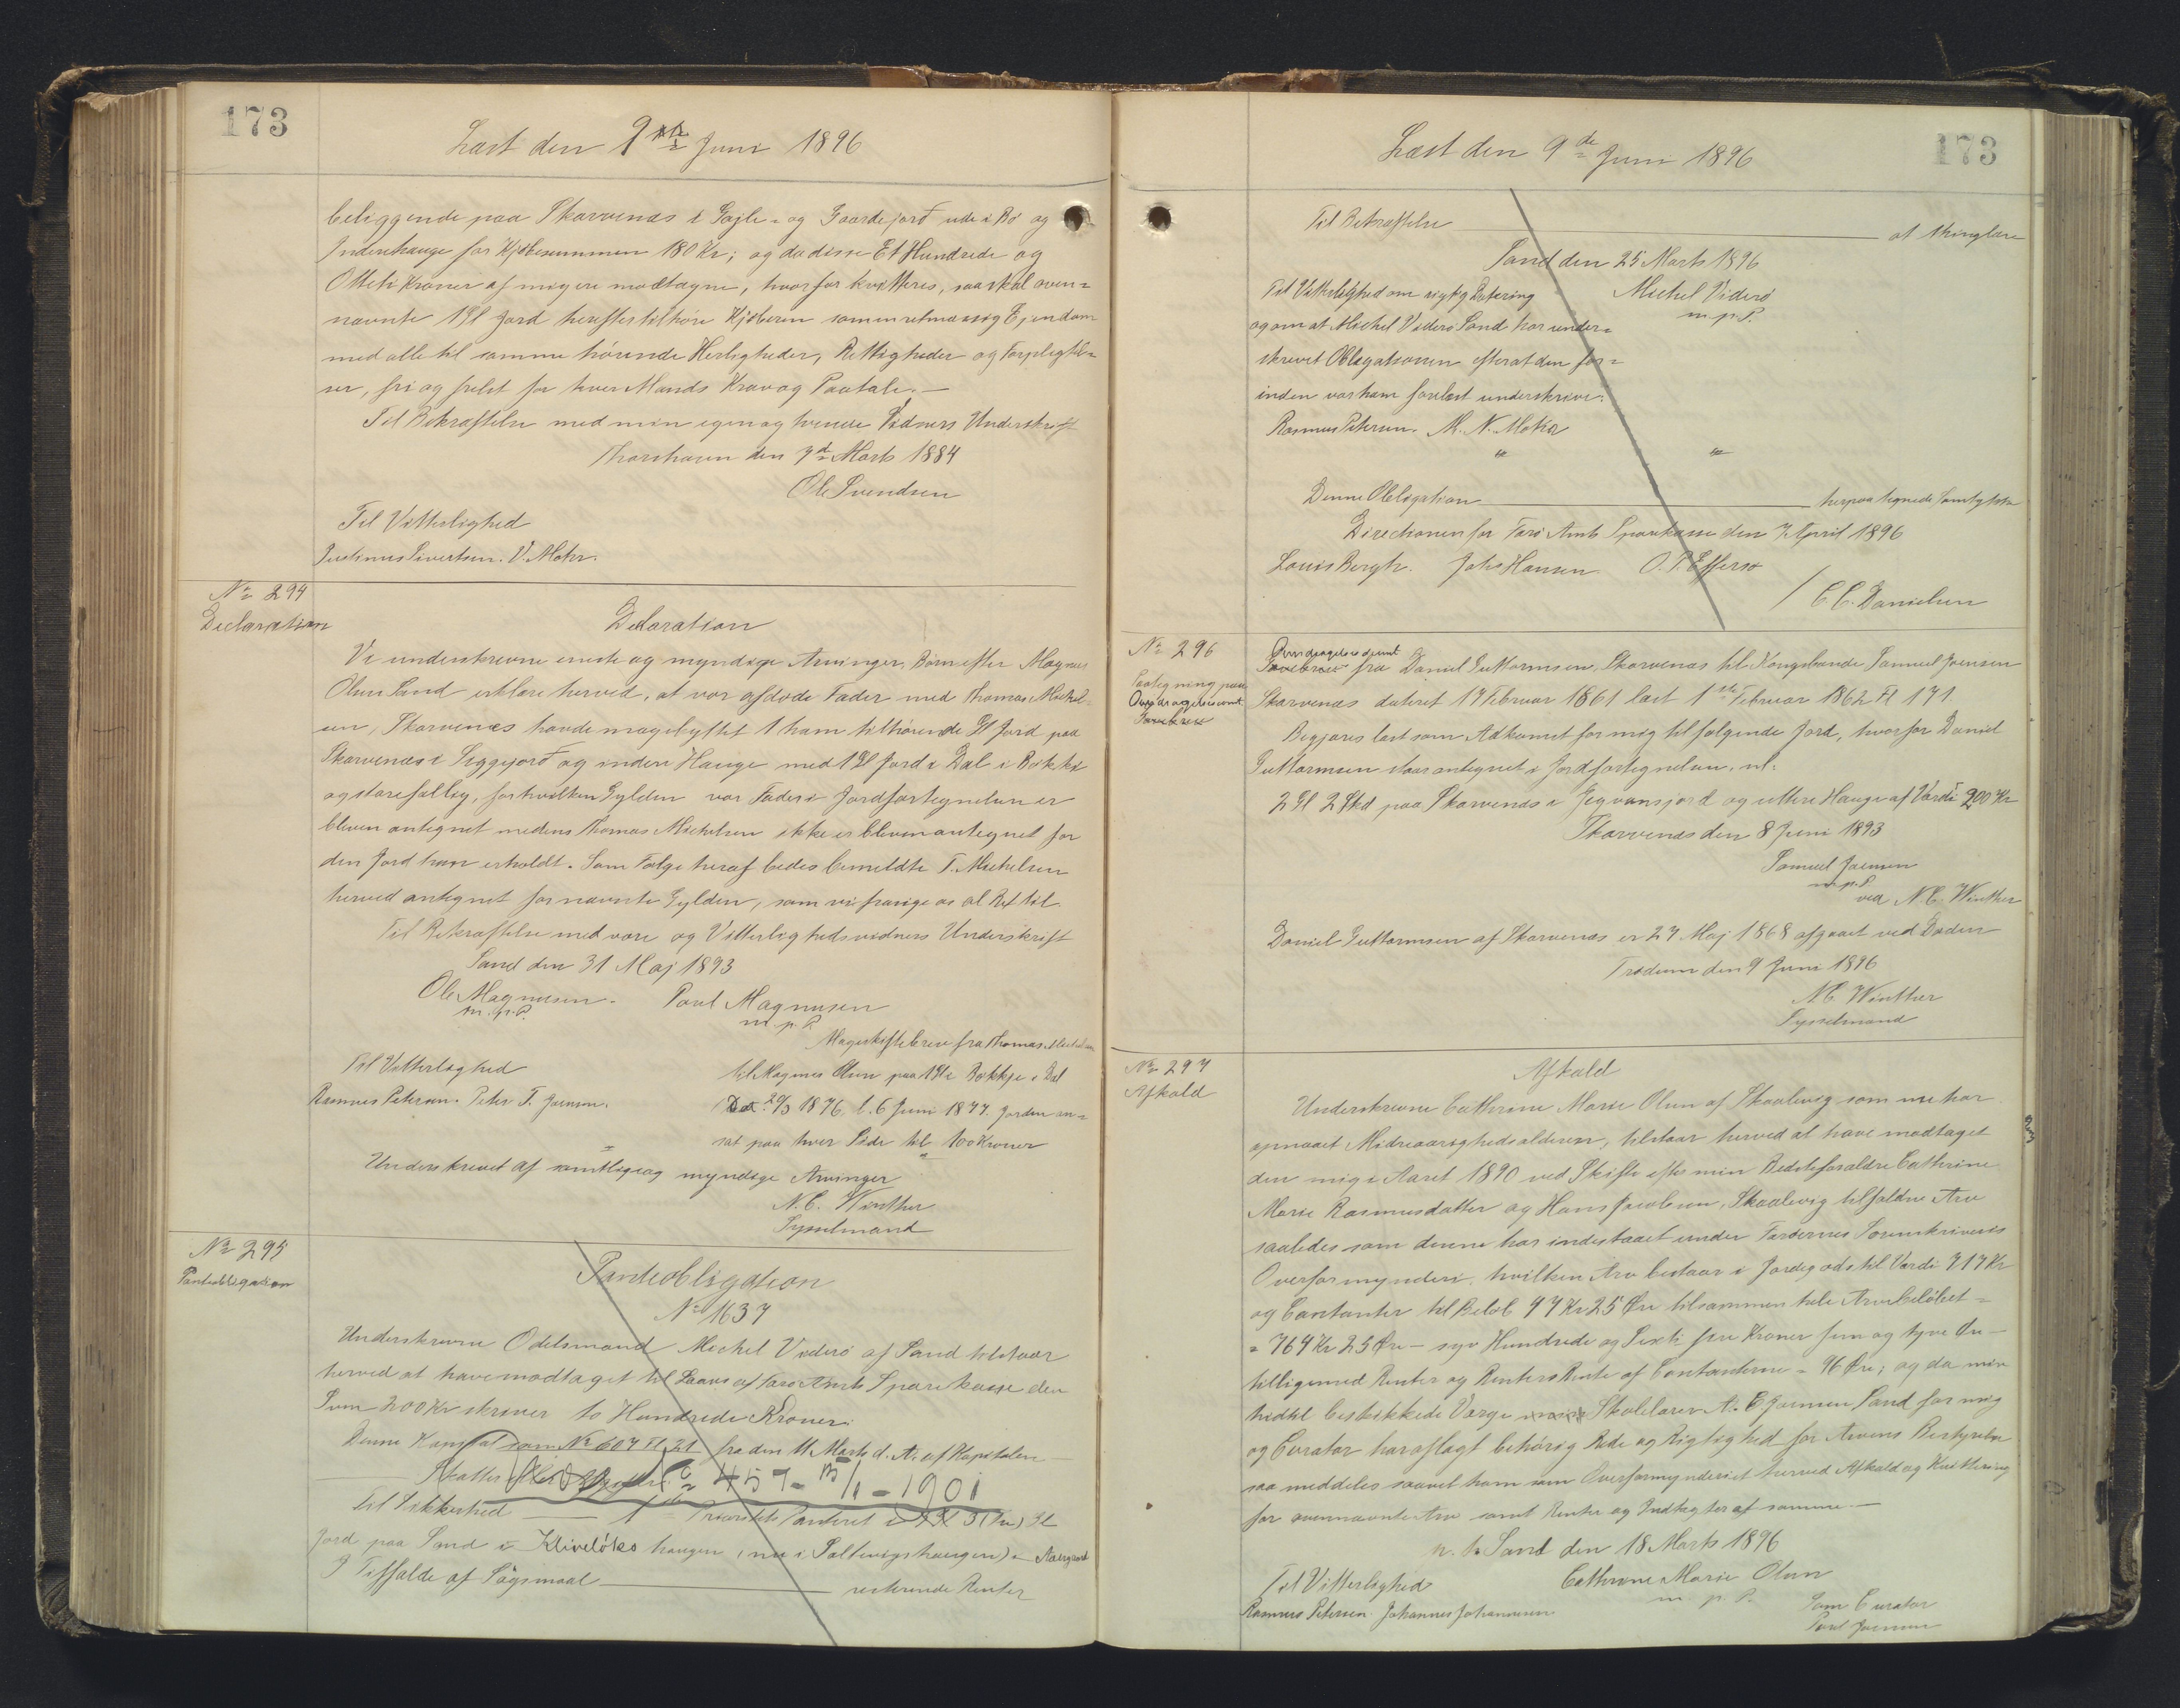 173
Læst den 9de Juni 1896
beliggende paa Skarvenæs i Gajle- og Gaardejorđ ude i Bø og
Inderehauge for Kjøbesummen 180 Kr; og da disse Et Hundrede og
Otteti Kroner af mig ere modtagne, hvorfor kvitteres, saa skal oven=
nævnte 1 Gl Jord herefter tilhøre Kjøberen som en retmæssig Ejendom
med alle til samme hørende Herligheder, Rettigheder og Forpligtel=
ser, fri og frelst for hver Mands Krav og Paatale.—
Til Bekræftelse med min egen og tvende Vidners Underskrift
Thorshavn den 7de Marts 1884
Ole Svendsen
Til Vitterlighed
Justinus Sivertsen. V. Mohr.
No 294
Declaration
Declaration
Vi underskrevne eneste og myndige Arvinger, Børn efter Magnus
Olsen Sand erklære herved, at vor afdøde Fader med Thomas Michel=
sen, Skarvenæs havde magebyttet 1 ham tilhørende Gl Jord paa
Skarvenæs i Siggejorđ og indere Hauge med 1 Gl Jord i Dal i Bøkki
og storefallig, for hvilken Gylden vor Fader i Jordfortegnelsen er
bleven antegnet medens Thomas Michelsen ikke er bleven antegnet for
den Jord han erholdt. Som Følge heraf bedes bemeldte T. Michelsen
herved antegnet for nævnte Gylden, som vi frasige os al Ret til.
Til Bekræftelse med vore og Vitterlighedsvidners Underskrift
Sand den 31 Maj 1893
Ole Magnusen. Poul Magnusen
m. p. P. m. p. P.
Mageskiftebrev fra Thomas Michelsen
Til Vitterlighed til Magnus Olsen paa 1 Gl i Bøkkje i Dal
Rasmus Petersen. Peter F. Joensen. Dat. 29/3 1876 l. 6 Juni 1877. Jorden an=
sat paa hver Side til 100 Kroner
Underskrevet af samtlige og myndige Arvinger
N. C. Winther
Sysselmand
No 295
Panteobligation
Panteobligation
No 1637
Underskrevne Odelsmand Michel Viderø af Sand tilstaar
herved at have modtaget til Laans af Færø Amts Sparekasse den
Sum 200 Kr skriver to Hundrede Kroner.
Denne Kapital som No 607 Fl 21 fra den 11 Marts d. A. af Kapitalen
Skatter
459 - 15/1 - 1901
Til Sikkerhed 1ste Prioritets Panteret i 3 (tre) Gl
Jord paa Sand i Klivelöks haugen (nu i Saltvigshaugen)
I Tilfælde af Søgsmaal resterende Renter
Læst den 9de Juni 1896
173
Til Bekræftelse at thinglæse
Sand den 25 Marts 1896
Til Vitterlighed om rigtig Datering Michel Viderø
og om at Michel Viderø Sand har under= m. p. P.
skrevet Obligationen efter at den for=
inden var ham forelæst underskrive:
Rasmus Petersen. M. N. Mohr
Denne Obligation herpaa tegnede Samtykke
Directionen for Færø Amts Sparekasse den 7 April 1896
Louis Bergh. Johs Hansen O. F. Effersø
/ C. C. Danielsen
No 296
Paategning paa
Overdragelsesdocumt
Overdragelsesdocumt
Skjødebrev fra Daniel Guttormsen, Skarvenæs til Kongsbonde Samuel Joensen
Skarvenæs dateret 17 Februar 1861 læst 1ste Februar 1862 Fl 171
Begjæres læst som Adkomst for mig til følgende Jord, hvorfor Daniel
Guttormsen staar antegnet i Jordfortegnelsen, nl:
2 Gl 2 Skd paa Skarvenæs i Jegvansjord og uttere Hauge af Værdi 200 Kr
Skarvenæs den 8 Juni 1893
Samuel Joensen
m. p. P.
ved N. C. Winther
Daniel Guttormsen af Skarvenæs er 27 Maj 1868 afgaaet ved Døden
Trødum den 9 Juni 1896
N. C. Winther
Sysselmand
No 297
Afkald
Afkald
Underskrevne Cathrine Marie Olsen af Skaalevig som nu har
opnaaet Midreaarighedsalderen, tilstaar herved at have modtaget
den mig i Aaret 1890 ved Skifte efter min Bedsteforældre Cathrine
Marie Rasmusdatter og Hans Jacobsen, Skaalevig tilfaldne Arv
saaledes som denne har indestaaet under Færøernes Sorenskriveris
Overformynderi, hvilken Arv bestaar i Jordegods til Værdi 717 Kr
og Contanter til Beløb 47 Kr 25 Øre tilsammen hele Arvebeløbet =
= 764 Kr 25 Øre — syv Hundrede og Sexti fire Kroner fem og tyve Øre —
tilligemed Renter og Renters Rente af Contanterne = 96 Øre; og da min
hidtil beskikkede Værge Skolelærer A. E. Joensen Sand for mig
og Curator har aflagt behørig Rede og Rigtighed for Arvens Bestyrelse
saa meddeles saavel ham som Overformynderiet herved Afkald og Kvittering
for ovennævnte Arv samt Renter og Indtægter af samme.—
p. t. Sand den 18 Marts 1896
Til Vitterlighed Cathrine Marie Olsen
Rasmus Petersen. Johannes Johannesen m. p. P. Som Curator
Poul Joensen